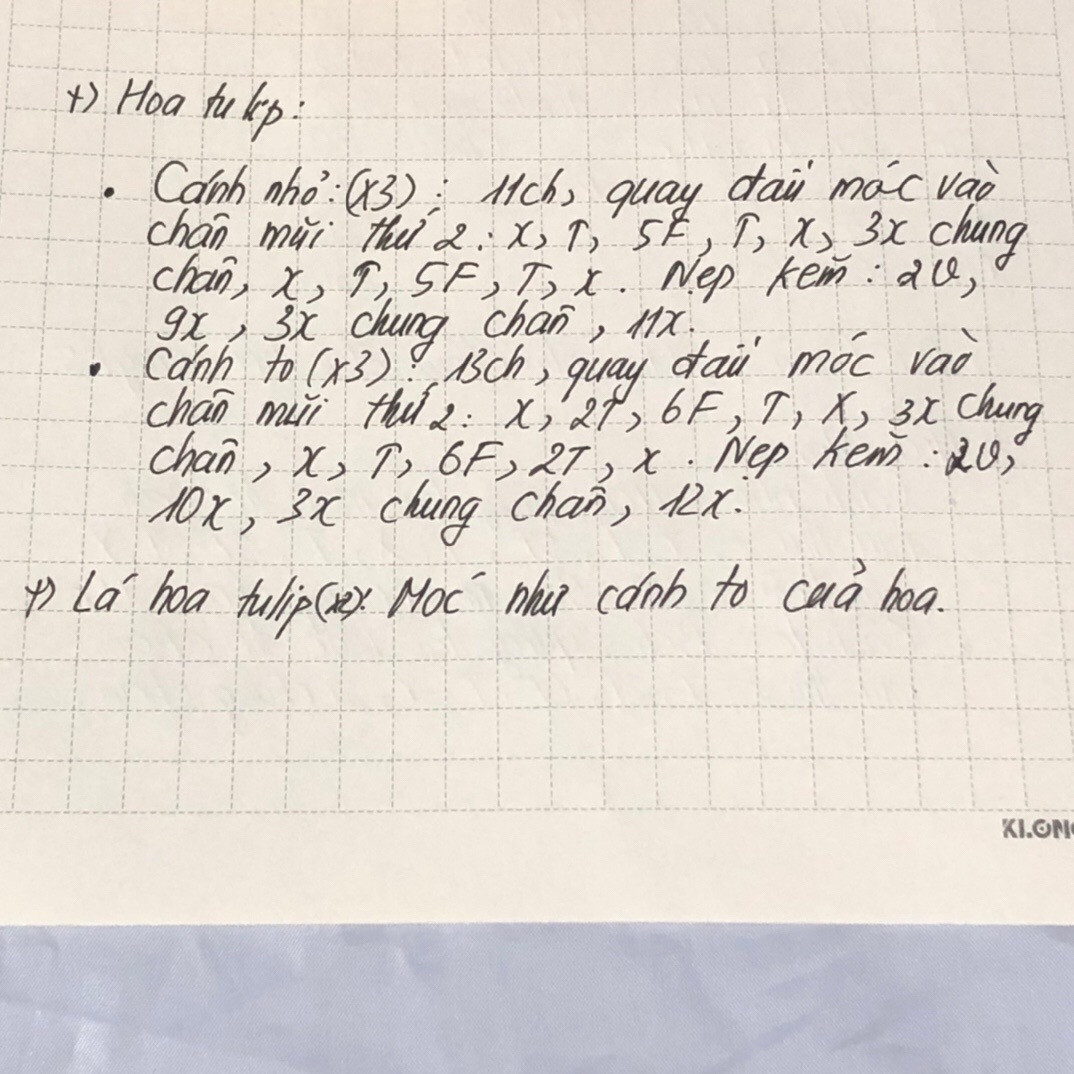 +) Hoa tulip:
• Cánh nhỏ: (x3): 11ch, quay đầu móc vào
chân mũi thứ 2: x, T, 5F, T, x, 3x chung
chân, x, T, 5F, T, x. Nẹp kẽm: 2V,
9x, 3x chung chân, 11x.
• Cánh to (x3): 13ch, quay đầu móc vào
chân mũi thứ 2: x, 2T, 6F, T, X, 3x chung
chân, x, T, 6F, 2T, x. Nẹp kẽm: 2V,
10x, 3x chung chân, 12x.
+) Lá hoa tulip (x2): Móc như cánh to của hoa.